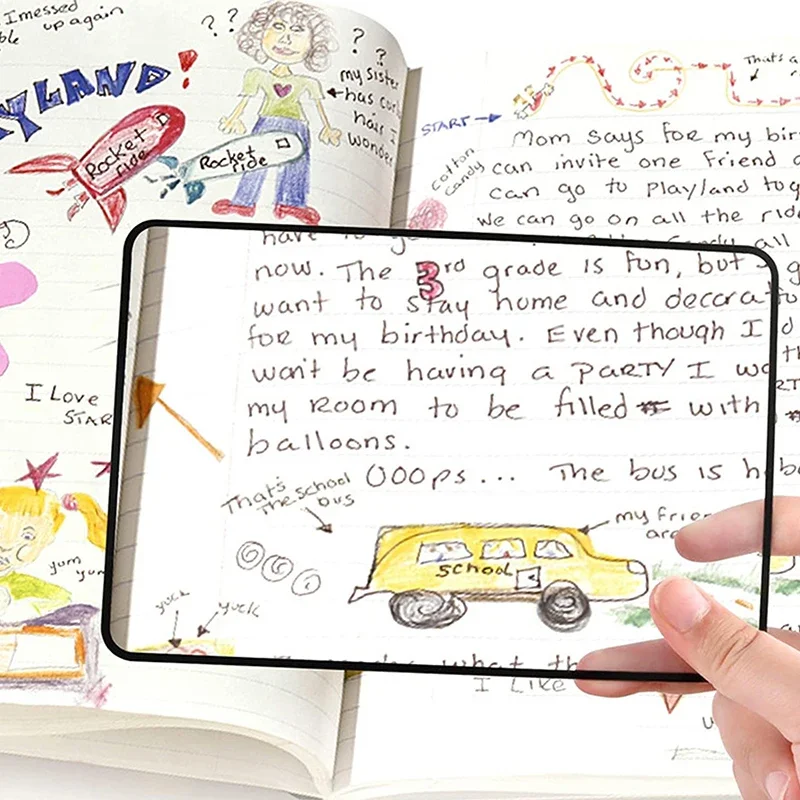 I messed
up again
? ?
YLAND!
Rocket
ride
Rocket
ride
? ?
my sister
has curly
hair I
wonder
I Love
STAR
yum
yum
That's a
START
cotton
candy
Mom says for my bir
can invite one friend
can go to Playland tog
we can go on all the rid
all
have to go
now. The 3rd grade is fun, but
want to stay home and decora
for my birthday. Even though I
won't be having a PARTY I wo
my room to be filled with
balloons.
OOOps... The bus is h
That's
the school
bus
my frie
are
SCHOOL
yuck
yuck
what th
I Like